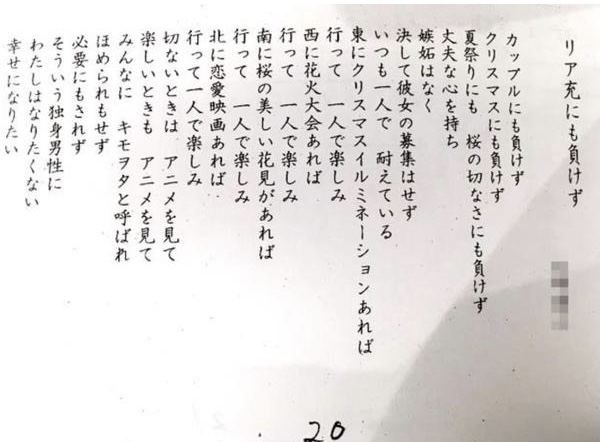 リア充にも負けず
カップルにも負けず
クリスマスにも負けず
夏祭りにも　桜の切なさにも負けず
丈夫な心を持ち
嫉妬はなく
決して彼女の募集はせず
いつも一人で　耐えている
東にクリスマスイルミネーションあれば
行って　一人で楽しみ
西に花火大会あれば
行って　一人で楽しみ
南に桜の美しい花見があれば
行って　一人で楽しみ
北に恋愛映画あれば
行って一人で楽しみ
切ないときは　アニメを見て
楽しいときも　アニメを見て
みんなに　キモヲタと呼ばれ
ほめられもせず
必要にもされず
そういう独身男性に
わたしはなりたくない
幸せになりたい
20